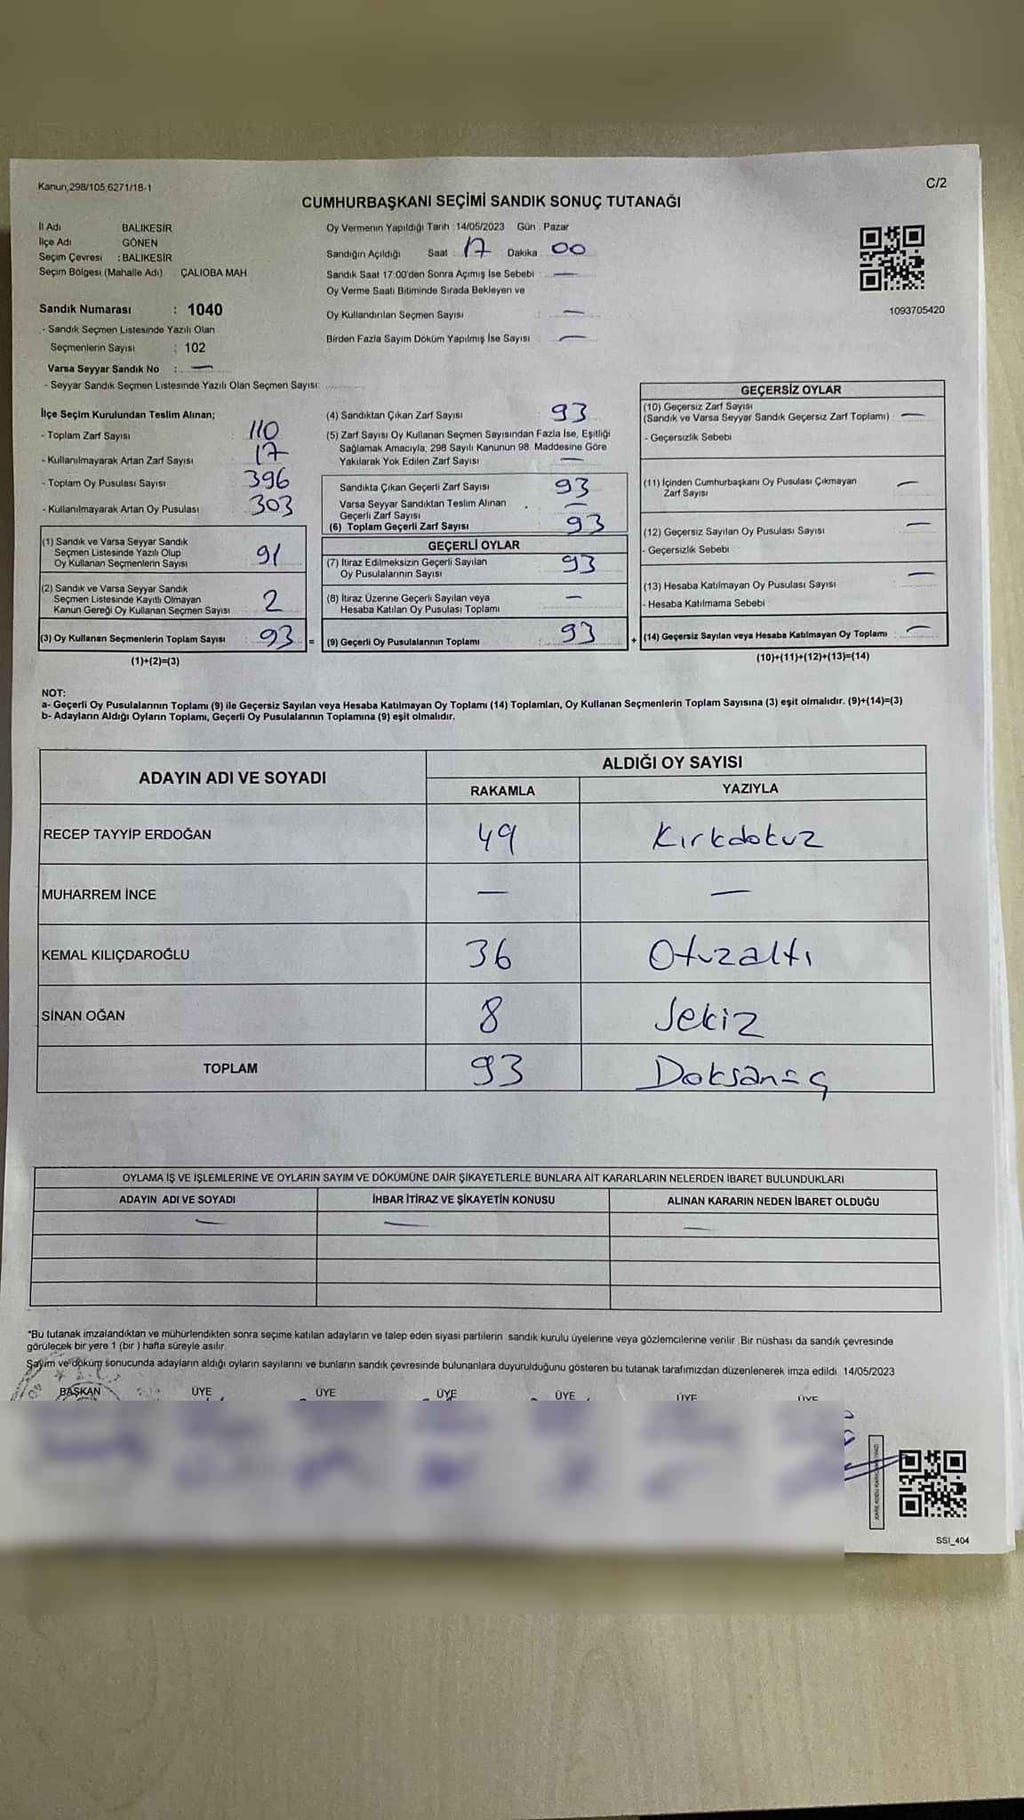 Kanun,298/105,6271/18-1
C/2
CUMHURBAŞKANI SEÇİMİ SANDIK SONUÇ TUTANAĞI
İl Adı BALIKESİR
İlçe Adı GÖNEN
Seçim Çevresi : BALIKESİR
Seçim Bölgesi (Mahalle Adı) ÇALIOBA MAH
Sandık Numarası : 1040
- Sandık Seçmen Listesinde Yazılı Olan
Seçmenlerin Sayısı : 102
Varsa Seyyar Sandık No : —
- Seyyar Sandık Seçmen Listesinde Yazılı Olan Seçmen Sayısı:
Oy Vermenin Yapıldığı Tarih 14/05/2023 Gün : Pazar
Sandığın Açıldığı Saat 17 Dakika 00
Sandık Saat 17:00'den Sonra Açımış İse Sebebi —
Oy Verme Saati Bitiminde Sırada Bekleyen ve
Oy Kullandırılan Seçmen Sayısı —
Birden Fazla Sayım Döküm Yapılmış İse Sayısı —
1093705420
İlçe Seçim Kurulundan Teslim Alınan;
- Toplam Zarf Sayısı 110
- Kullanılmayarak Artan Zarf Sayısı 17
- Toplam Oy Pusulası Sayısı 396
- Kullanılmayarak Artan Oy Pusulası 303
(1) Sandık ve Varsa Seyyar Sandık
Seçmen Listesinde Yazılı Olup
Oy Kullanan Seçmenlerin Sayısı 91
(2) Sandık ve Varsa Seyyar Sandık
Seçmen Listesinde Kayıtlı Olmayan
Kanun Gereği Oy Kullanan Seçmen Sayısı 2
(3) Oy Kullanan Seçmenlerin Toplam Sayısı 93 =
(1)+(2)=(3)
(4) Sandıktan Çıkan Zarf Sayısı 93
(5) Zarf Sayısı Oy Kullanan Seçmen Sayısından Fazla İse, Eşitliği
Sağlamak Amacıyla, 298 Sayılı Kanunun 98. Maddesine Göre
Yakılarak Yok Edilen Zarf Sayısı —
Sandıkta Çıkan Geçerli Zarf Sayısı 93
Varsa Seyyar Sandıktan Teslim Alınan
Geçerli Zarf Sayısı —
(6) Toplam Geçerli Zarf Sayısı 93
GEÇERLİ OYLAR
(7) İtiraz Edilmeksizin Geçerli Sayılan
Oy Pusulalarının Sayısı 93
(8) İtiraz Üzerine Geçerli Sayılan veya
Hesaba Katılan Oy Pusulası Toplamı —
(9) Geçerli Oy Pusulalarının Toplamı 93 +
GEÇERSİZ OYLAR
(10) Geçersiz Zarf Sayısı
(Sandık ve Varsa Seyyar Sandık Geçersiz Zarf Toplamı) —
- Geçersizlik Sebebi
(11) İçinden Cumhurbaşkanı Oy Pusulası Çıkmayan
Zarf Sayısı —
(12) Geçersiz Sayılan Oy Pusulası Sayısı —
- Geçersizlik Sebebi
(13) Hesaba Katılmayan Oy Pusulası Sayısı —
- Hesaba Katılmama Sebebi
(14) Geçersiz Sayılan veya Hesaba Katılmayan Oy Toplamı —
(10)+(11)+(12)+(13)=(14)
NOT:
a- Geçerli Oy Pusulalarının Toplamı (9) ile Geçersiz Sayılan veya Hesaba Katılmayan Oy Toplamı (14) Toplamları, Oy Kullanan Seçmenlerin Toplam Sayısına (3) eşit olmalıdır. (9)+(14)=(3)
b- Adayların Aldığı Oyların Toplamı, Geçerli Oy Pusulalarının Toplamına (9) eşit olmalıdır.
ADAYIN ADI VE SOYADI ALDIĞI OY SAYISI
RAKAMLA YAZIYLA
RECEP TAYYİP ERDOĞAN 49 Kırkdokuz
MUHARREM İNCE — —
KEMAL KILIÇDAROĞLU 36 Otuzaltı
SİNAN OĞAN 8 Sekiz
TOPLAM 93 Doksanüç
OYLAMA İŞ VE İŞLEMLERİNE VE OYLARIN SAYIM VE DÖKÜMÜNE DAİR ŞİKAYETLERLE BUNLARA AİT KARARLARIN NELERDEN İBARET BULUNDUKLARI
ADAYIN ADI VE SOYADI İHBAR İTİRAZ VE ŞİKAYETİN KONUSU ALINAN KARARIN NEDEN İBARET OLDUĞU
— — —
*Bu tutanak imzalandıktan ve mühürlendikten sonra seçime katılan adayların ve talep eden siyasi partilerin sandık kurulu üyelerine veya gözlemcilerine verilir. Bir nüshası da sandık çevresinde
görülecek bir yere 1 (bir ) hafta süreyle asılır.
Sayım ve döküm sonucunda adayların aldığı oyların sayılarını ve bunların sandık çevresinde bulunanlara duyurulduğunu gösteren bu tutanak tarafımızdan düzenlenerek imza edildi. 14/05/2023
BAŞKAN ÜYE ÜYE ÜYE ÜYE ÜYE ÜYE
SSI_404